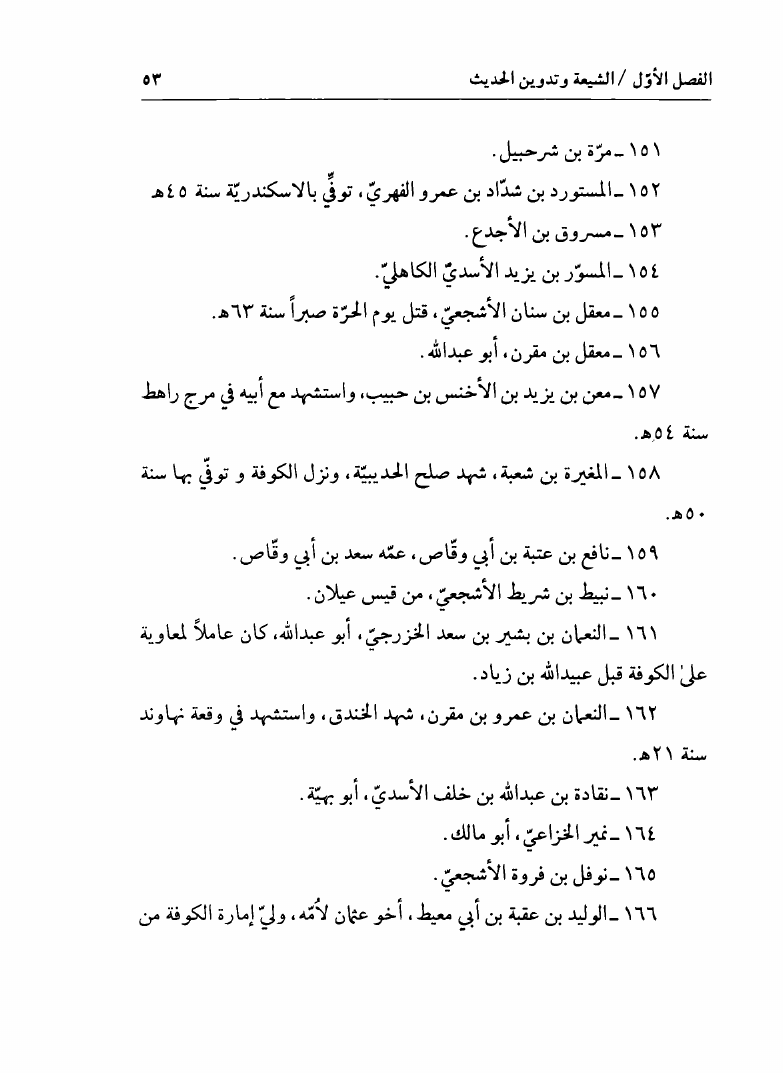 الفصل الأوّل / الشيعة وتدوين الحديث ٥٣
١٥١ ـ مرّة بن شرحبيل.
١٥٢ ـ المستورد بن شدّاد بن عمرو الفهريّ، توفّي بالاسكندريّة سنة ٤٥هـ
١٥٣ ـ مسروق بن الأجدع.
١٥٤ ـ المسوّر بن يزيد الأسديّ الكاهليّ.
١٥٥ ـ معقل بن سنان الأشجعيّ، قتل يوم الحرّة صبراً سنة ٦٣هـ.
١٥٦ ـ معقل بن مقرن، أبو عبدالله.
١٥٧ ـ معن بن يزيد بن الأخنس بن حبيب، واستشهد مع أبيه في مرج راهط
سنة ٥٤هـ.
١٥٨ ـ المغيرة بن شعبة، شهد صلح الحديبيّة، ونزل الكوفة و توفّي بها سنة
٥٠هـ.
١٥٩ ـ نافع بن عتبة بن أبي وقّاص، عمّه سعد بن أبي وقّاص.
١٦٠ ـ نبيط بن شريط الأشجعيّ، من قيس عيلان.
١٦١ ـ النعمان بن بشير بن سعد الخزرجيّ، أبو عبدالله، كان عاملاً لمعاوية
علىٰ الكوفة قبل عبيدالله بن زياد.
١٦٢ ـ النعمان بن عمرو بن مقرن، شهد الخندق، واستشهد في وقعة نهاوند
سنة ٢١هـ.
١٦٣ ـ نقادة بن عبدالله بن خلف الأسديّ، أبو بهيّة.
١٦٤ ـ نمير الخزاعيّ، أبو مالك.
١٦٥ ـ نوفل بن فروة الأشجعيّ.
١٦٦ ـ الوليد بن عقبة بن أبي معيط، أخو عثمان لاُمّه، وليّ إمارة الكوفة من